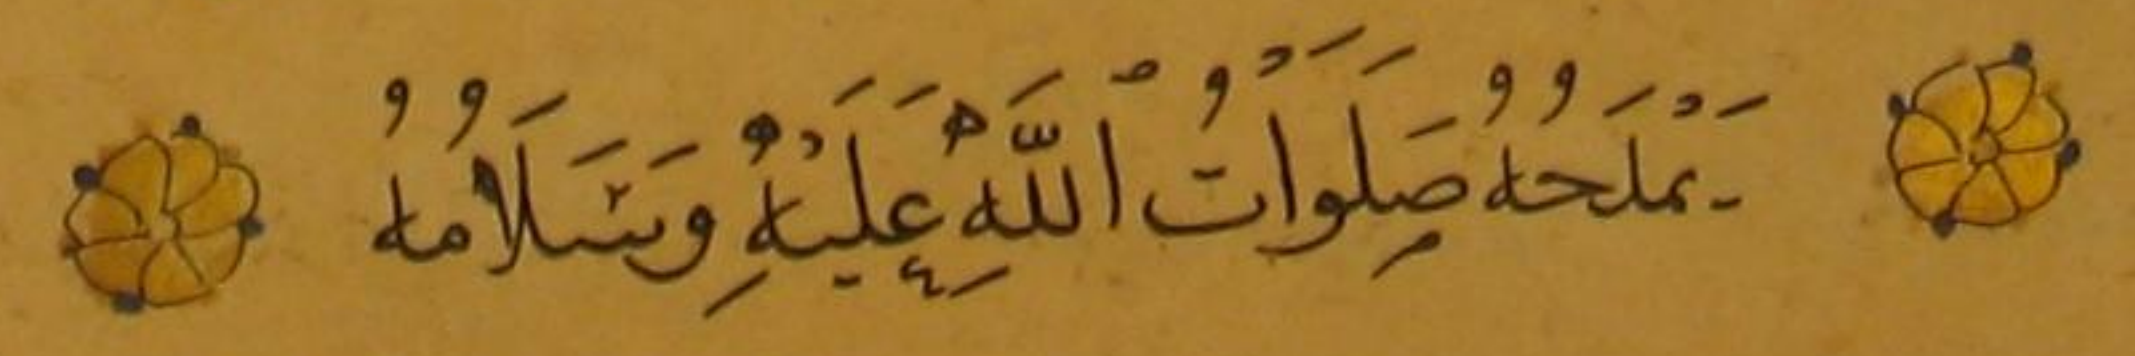 يَمْدَحُهُ صَلَوَاتُ ٱللَّهِ عَلَيْهِ وَسَلَامُهُ